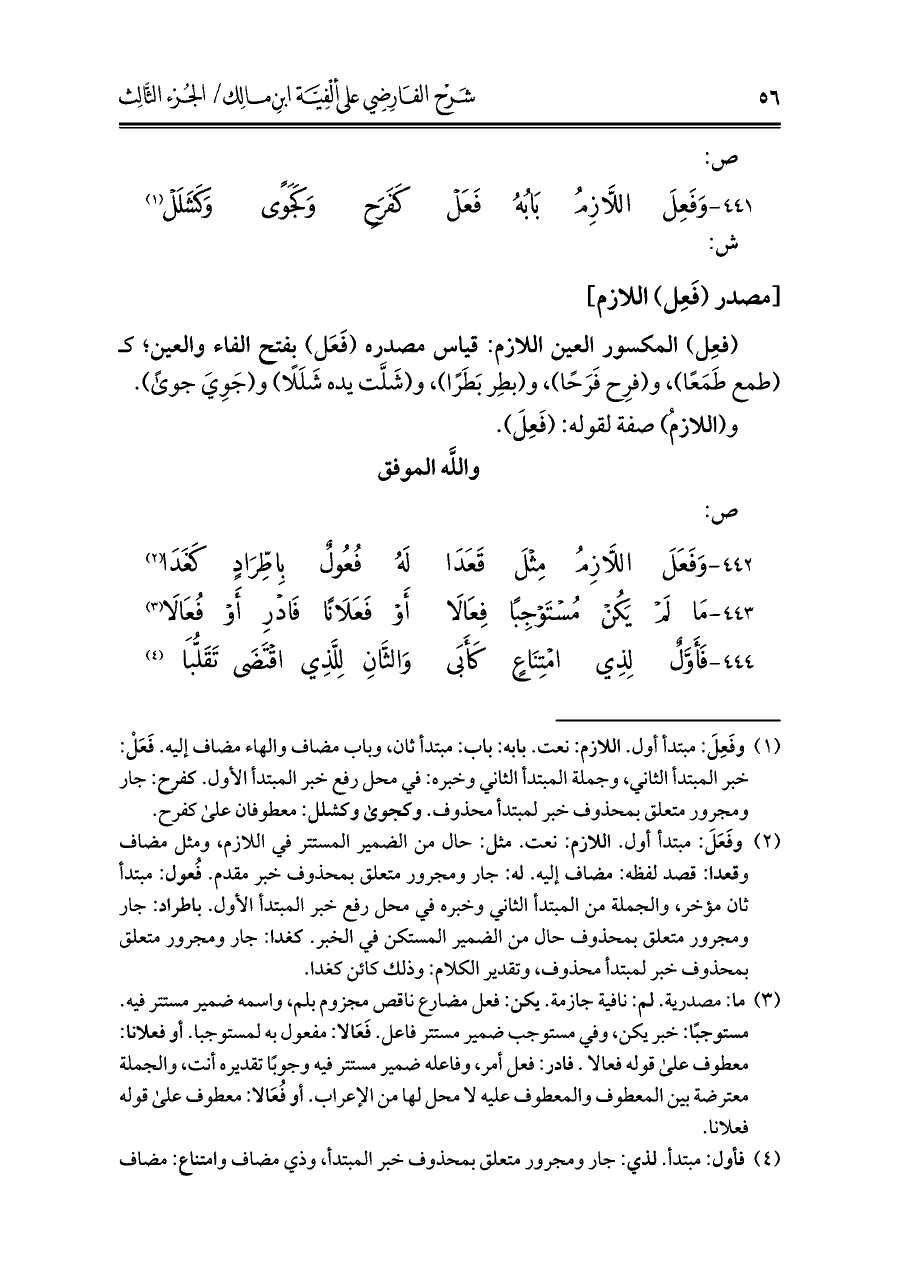 ٥٦ شَرْح الفَارِضِي عَلى ألْفِيَّة ابنِ مَالِك/ الجُزء الثَّالِث
ص:
٤٤١-وَفَعِلَ اللَّازِمُ بَابُهُ فَعَلْ كَفَرَحٍ وَكَجَوًى وَكَشَلَلْ(١)
ش:
[مصدر (فَعِل) اللازم]
(فعِل) المكسور العين اللازم: قياس مصدره (فَعَل) بفتح الفاء والعين؛ كـ
(طمع طَمَعًا)، و(فرِح فَرَحًا)، و(بطِر بَطَرًا)، و(شَلَّت يده شَلَلًا) و(جَوِيَ جوىً).
و(اللازمُ) صفة لقوله: (فَعِلَ).
واللَّه الموفق
ص:
٤٤٢-وَفَعَلَ اللَّازِمُ مِثْلَ قَعَدَا لَهُ فُعُولٌ بِاطِّرَادٍ كَغَدَا(٢)
٤٤٣-مَا لَمْ يَكُنْ مُسْتَوْجِبًا فِعَالَا أَوْ فَعَلَانًا فَادْرِ أَوْ فُعَالَا(٣)
٤٤٤-فَأَوَّلٌ لِذِي امْتِنَاعٍ كَأَبَى وَالثَّانِ لِلَّذِي اقْتَضَى تَقَلُّبَا (٤)
(١) وفَعِلَ: مبتدأ أول. اللازم: نعت. بابه: باب: مبتدأ ثان، وباب مضاف والهاء مضاف إليه. فَعَلْ:
خبر المبتدأ الثاني، وجملة المبتدأ الثاني وخبره: في محل رفع خبر المبتدأ الأول. كفرح: جار
ومجرور متعلق بمحذوف خبر لمبتدأ محذوف. وكجوىٰ وكشلل: معطوفان علىٰ كفرح.
(٢) وفَعَلَ: مبتدأ أول. اللازم: نعت. مثل: حال من الضمير المستتر في اللازم، ومثل مضاف
وقعدا: قصد لفظه: مضاف إليه. له: جار ومجرور متعلق بمحذوف خبر مقدم. فُعول: مبتدأ
ثان مؤخر، والجملة من المبتدأ الثاني وخبره في محل رفع خبر المبتدأ الأول. باطراد: جار
ومجرور متعلق بمحذوف حال من الضمير المستكن في الخبر. كغدا: جار ومجرور متعلق
بمحذوف خبر لمبتدأ محذوف، وتقدير الكلام: وذلك كائن كغدا.
(٣) ما: مصدرية. لم: نافية جازمة. يكن: فعل مضارع ناقص مجزوم بلم، واسمه ضمير مستتر فيه.
مستوجبًا: خبر يكن، وفي مستوجب ضمير مستتر فاعل. فَعَالا: مفعول به لمستوجبا. أو فعلانا:
معطوف علىٰ قوله فعالا . فادر: فعل أمر، وفاعله ضمير مستتر فيه وجوبًا تقديره أنت، والجملة
معترضة بين المعطوف والمعطوف عليه لا محل لها من الإعراب. أو فُعَالا: معطوف علىٰ قوله
فعلانا.
(٤) فأول: مبتدأ. لذي: جار ومجرور متعلق بمحذوف خبر المبتدأ، وذي مضاف وامتناع: مضاف